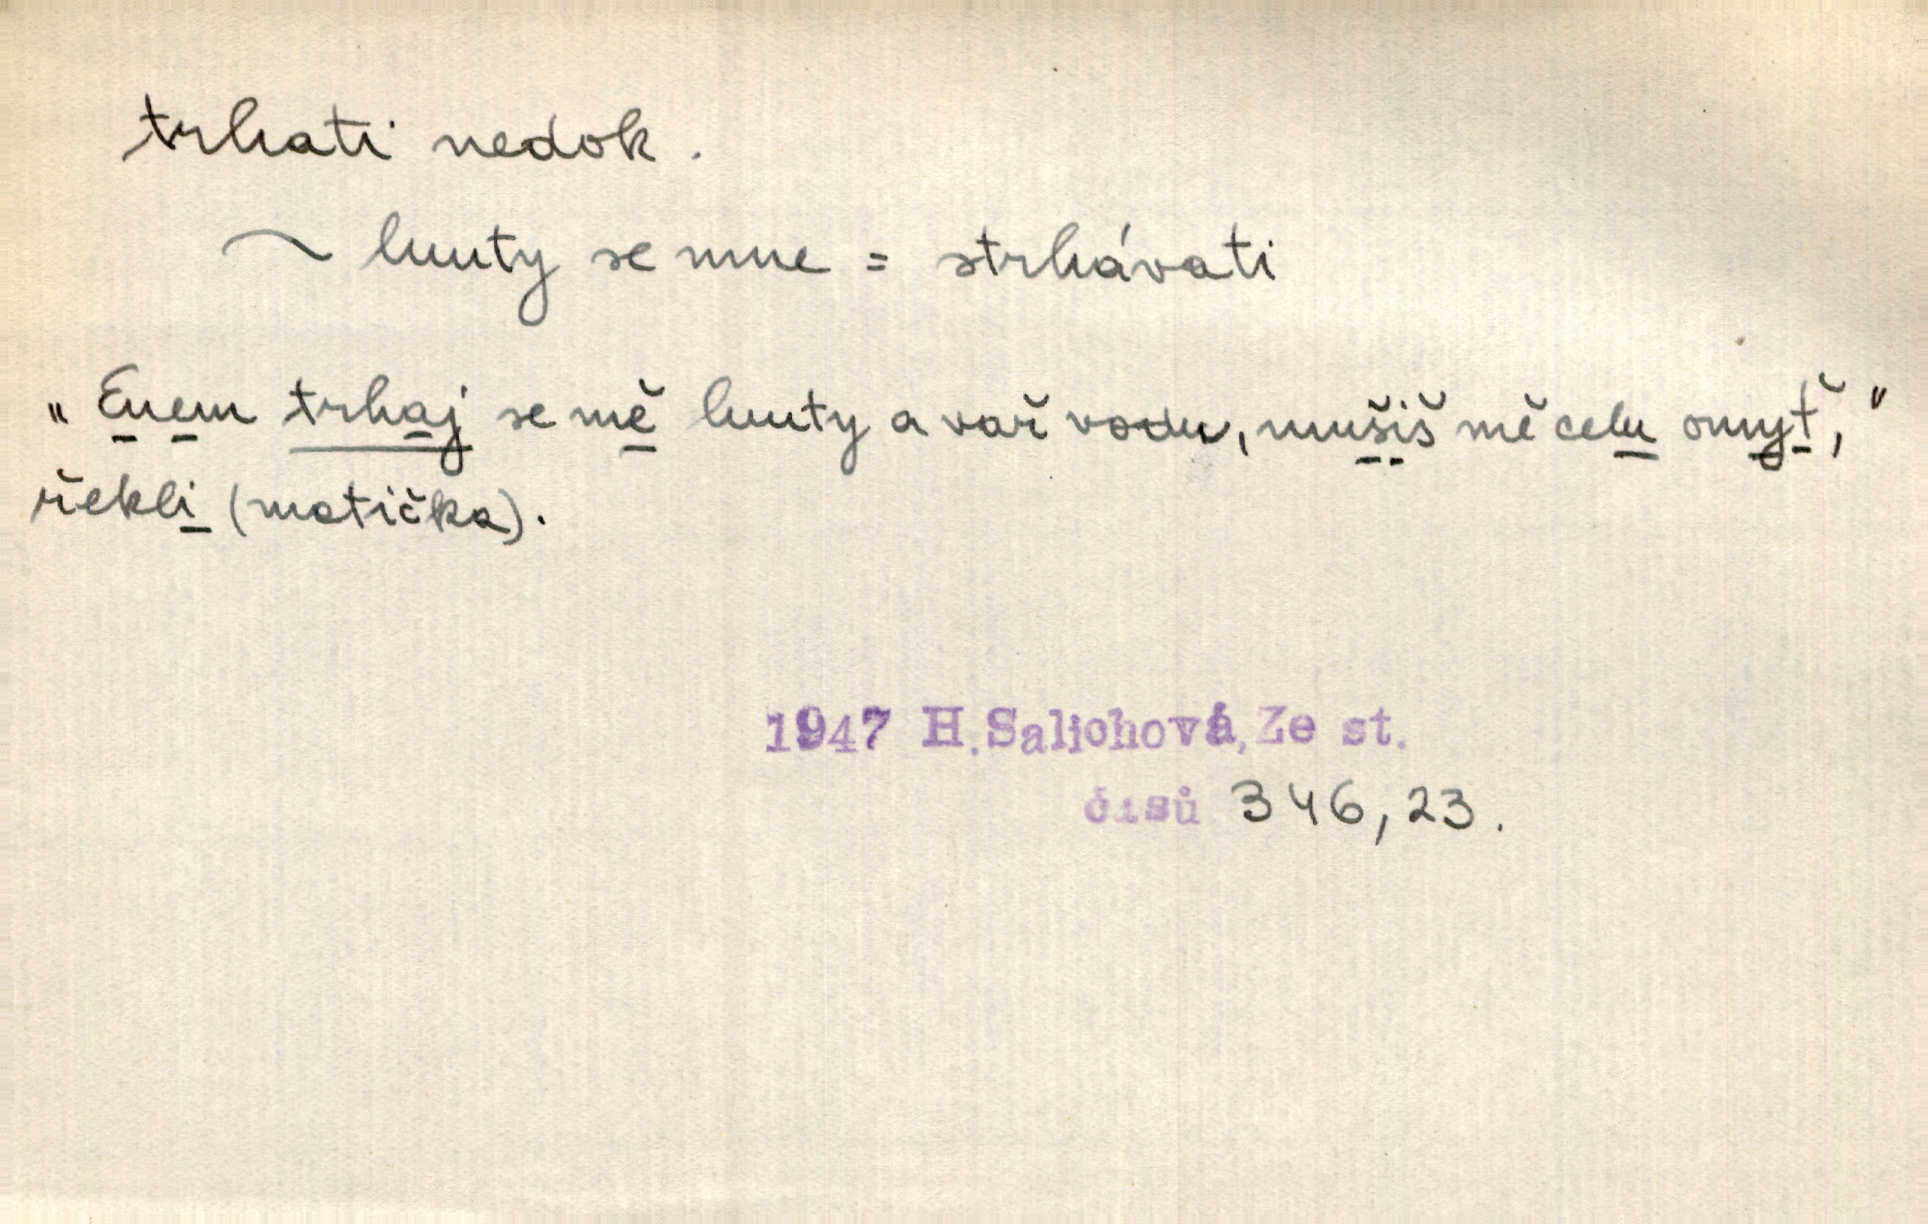 trhati nedok.
~ hunty se mne = strhávati
„Enem trhaj se mě hunty a vař vodu, mušiš mě celu omyť,"
řekli (matička).
1947 H.Salichová,Ze st.
časů 346,23.